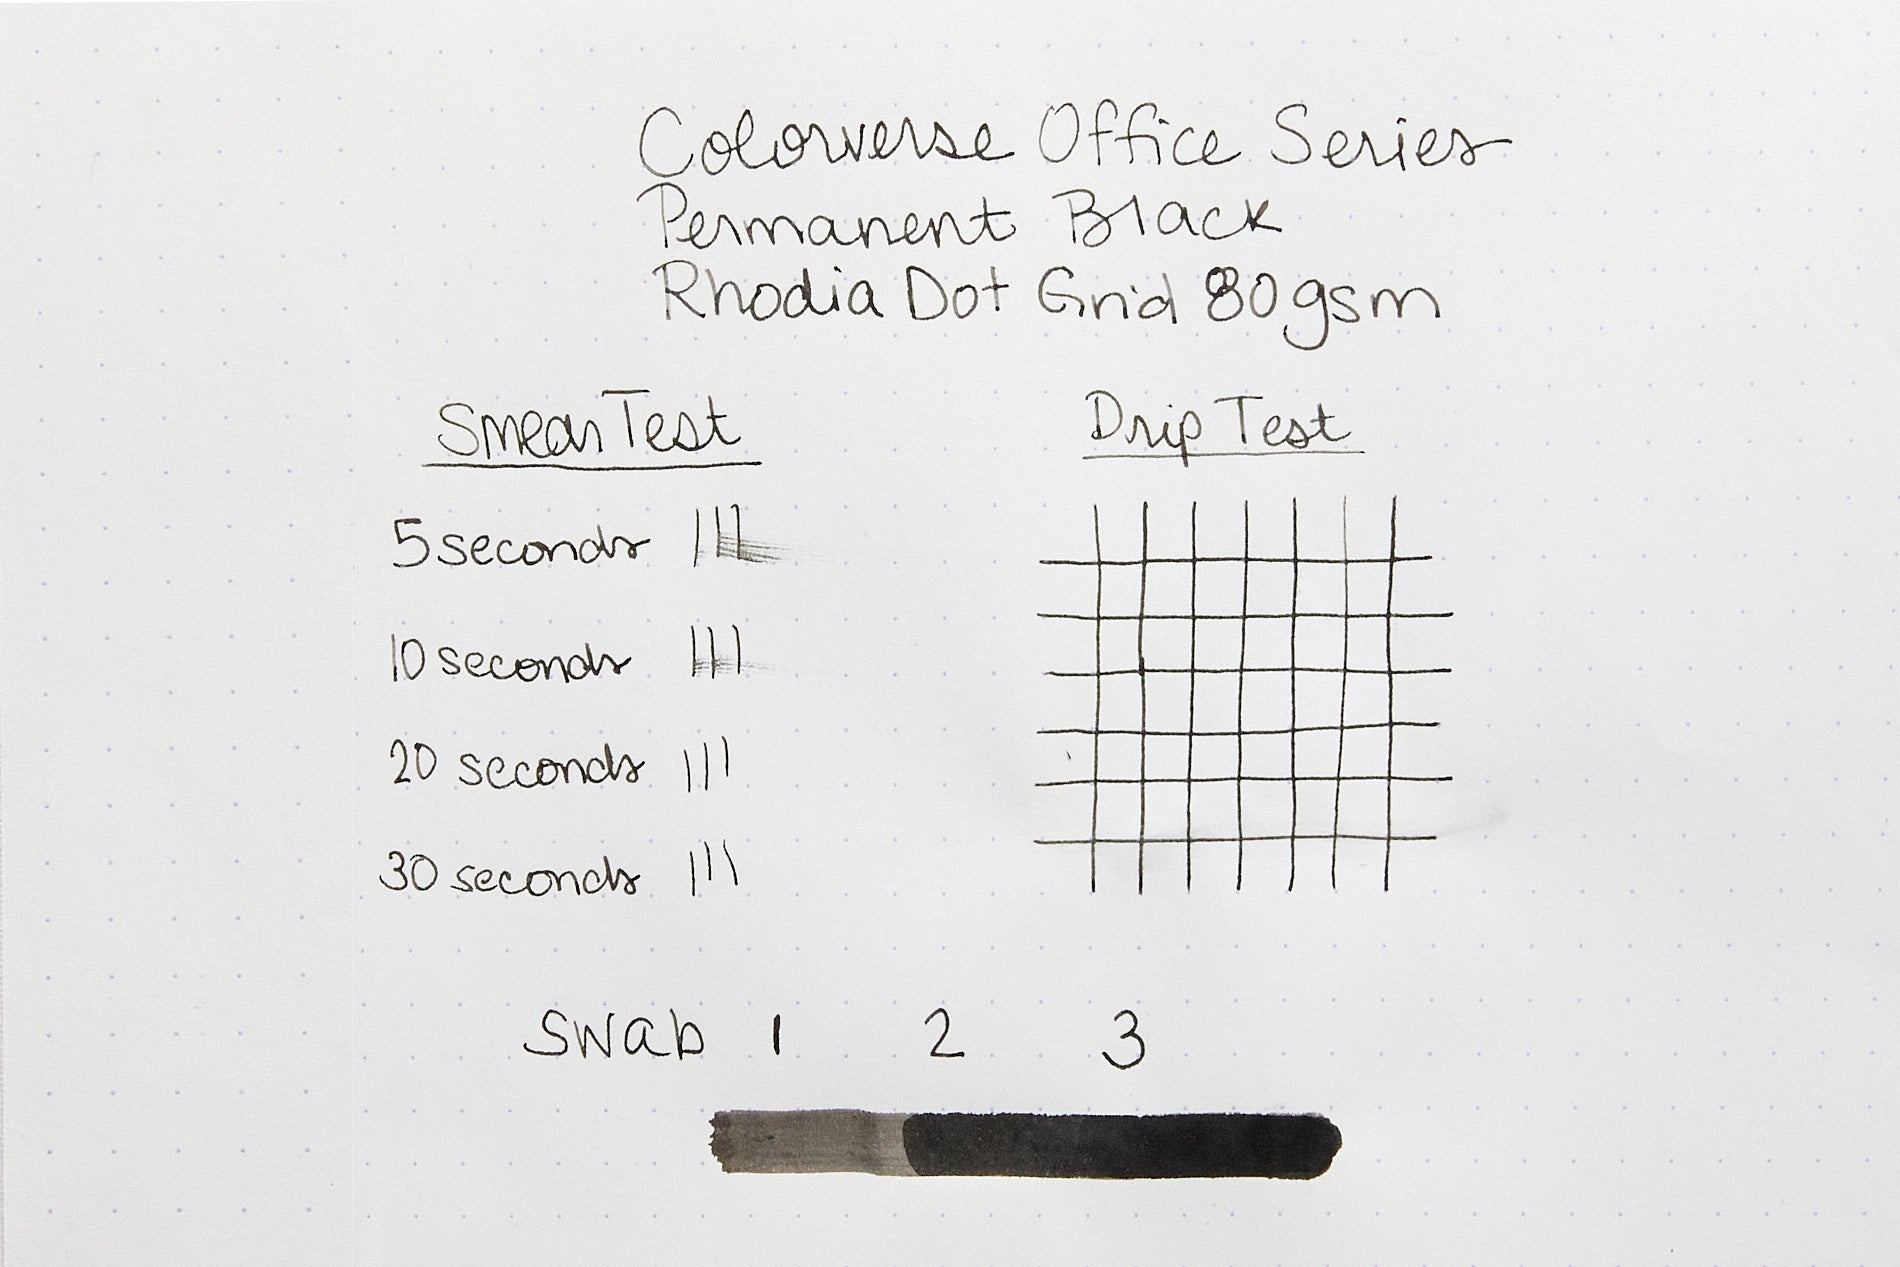 Colorverse Office Series
Permanent Black
Rhodia Dot Grid 80gsm
Smear Test
Drip Test
5 seconds
10 seconds
20 seconds
30 seconds
Swab 1 2 3